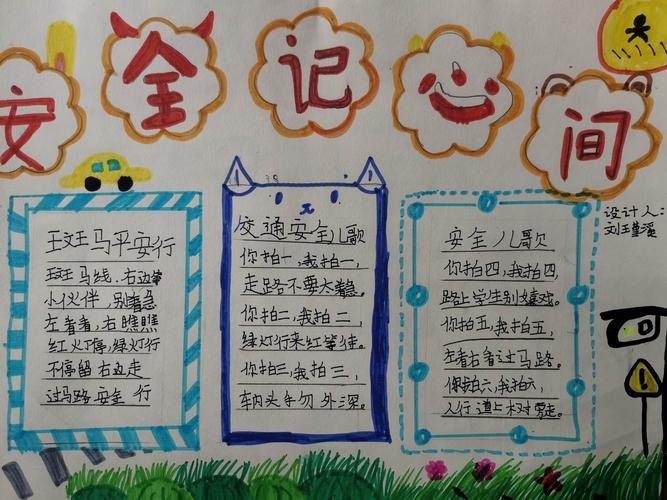 安全记心间
设计人:
刘王堇溪
斑马平安行
斑马线,右边靠
小伙伴,别着急
左看看,右瞧瞧
红灯停,绿灯行
不停留右边走
过马路安全行
交通安全儿歌
你拍一,我拍一,
走路不要太着急。
你拍二,我拍二,
绿灯行来红等徒。
你拍三,我拍三,
车内头手勿外深。
安全儿歌
你拍四,我拍四,
路上学生别嬉戏。
你拍五,我拍五,
左看右看过马路。
你拍六,我拍六,
人行道上